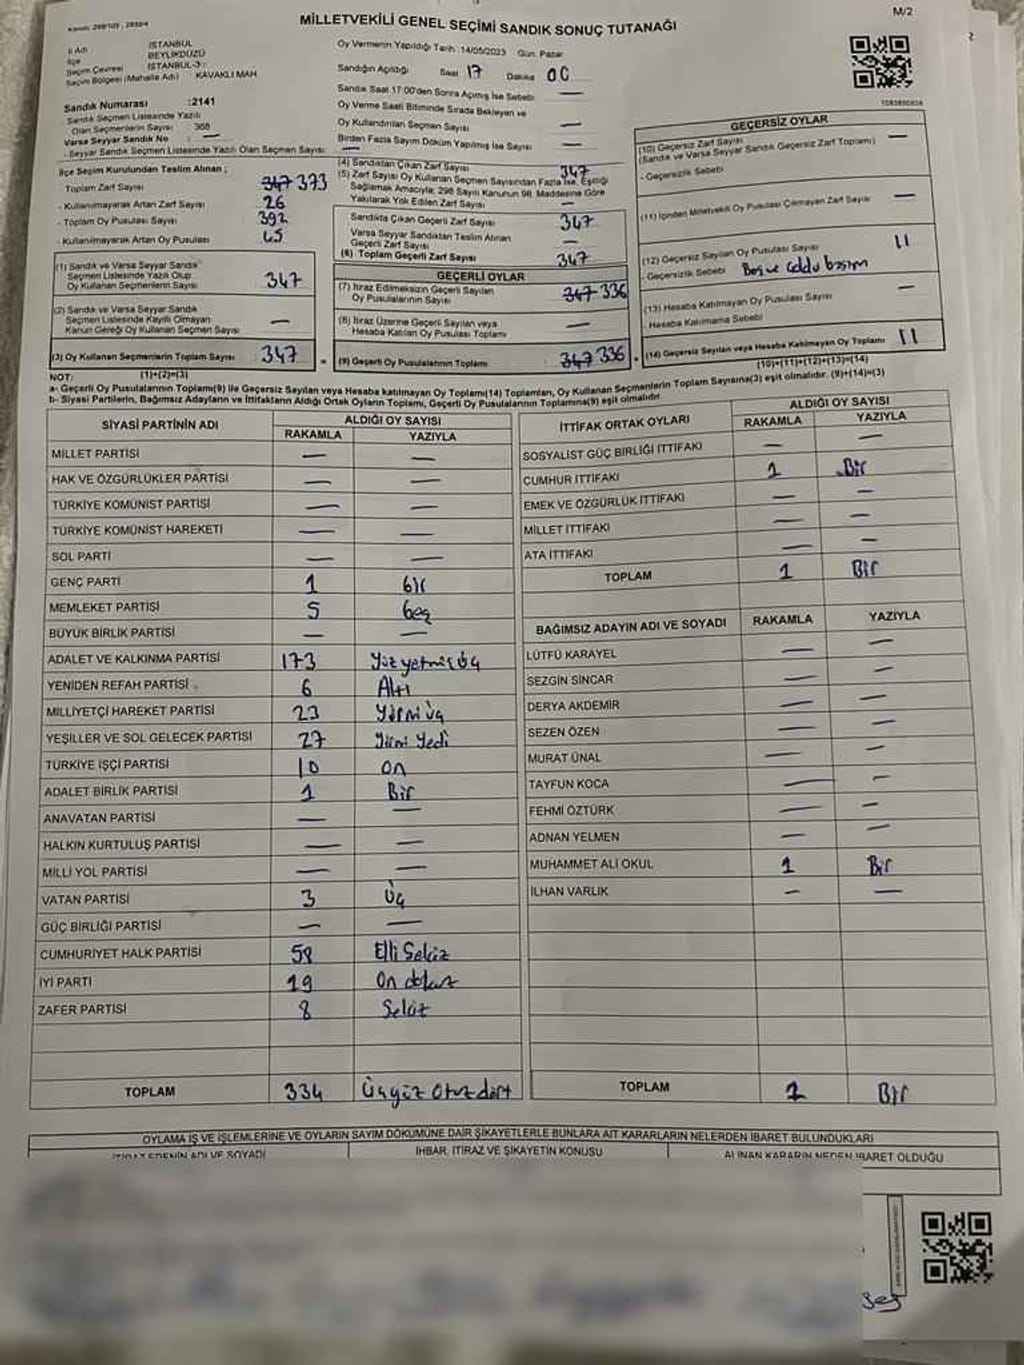 MİLLETVEKİLİ GENEL SEÇİMİ SANDIK SONUÇ TUTANAĞI
M/2
İl Adı İSTANBUL
İlçe BEYLİKDÜZÜ
Seçim Çevresi İSTANBUL-3
Seçim Bölgesi (Mahalle Adı) KAVAKLI MAH
Sandık Numarası :2141
Sandık Seçmen Listesinde Yazılı
Olan Seçmenlerin Sayısı : 368
Varsa Seyyar Sandık No : —
- Seyyar Sandık Seçmen Listesinde Yazılı Olan Seçmen Sayısı: —
Oy Vermenin Yapıldığı Tarih :14/05/2023 Gün: Pazar
Sandığın Açıldığı Saat: 17 Dakika 00
Sandık Saat 17:00'den Sonra Açılmış İse Sebebi —
Oy Verme Saati Bitiminde Sırada Bekleyen ve
Oy Kullandırılan Seçmen Sayısı —
Birden Fazla Sayım Döküm Yapılmış İse Sayısı —
İlçe Seçim Kurulundan Teslim Alınan ;
Toplam Zarf Sayısı 347 373
- Kullanılmayarak Artan Zarf Sayısı 26
- Toplam Oy Pusulası Sayısı 392
- Kullanılmayarak Artan Oy Pusulası 45
(1) Sandık ve Varsa Seyyar Sandık
Seçmen Listesinde Yazılı Olup
Oy Kullanan Seçmenlerin Sayısı 347
(2) Sandık ve Varsa Seyyar Sandık
Seçmen Listesinde Kayıtlı Olmayan
Kanun Gereği Oy Kullanan Seçmen Sayısı —
(3) Oy Kullanan Seçmenlerin Toplam Sayısı 347
(1)+(2)=(3)
(4) Sandıktan Çıkan Zarf Sayısı 347
(5) Zarf Sayısı Oy Kullanan Seçmen Sayısından Fazla İse, Eşitliği
Sağlamak Amacıyla; 298 Sayılı Kanunun 98. Maddesine Göre
Yakılarak Yok Edilen Zarf Sayısı —
Sandıkta Çıkan Geçerli Zarf Sayısı 347
Varsa Seyyar Sandıktan Teslim Alınan
Geçerli Zarf Sayısı —
(6) Toplam Geçerli Zarf Sayısı 347
GEÇERLİ OYLAR
(7) İtiraz Edilmeksizin Geçerli Sayılan
Oy Pusulalarının Sayısı 347 336
(8) İtiraz Üzerine Geçerli Sayılan veya
Hesaba Katılan Oy Pusulası Toplamı —
(9) Geçerli Oy Pusulalarının Toplamı 347 336
GEÇERSİZ OYLAR
(10) Geçersiz Zarf Sayısı —
(Sandık ve Varsa Seyyar Sandık Geçersiz Zarf Toplamı)
- Geçersizlik Sebebi
(11) İçinden Milletvekili Oy Pusulası Çıkmayan Zarf Sayısı —
(12) Geçersiz Sayılan Oy Pusulası Sayısı 11
- Geçersizlik Sebebi Boş ve
(13) Hesaba Katılmayan Oy Pusulası Sayısı —
- Hesaba Katılmama Sebebi
(14) Geçersiz Sayılan veya Hesaba Katılmayan Oy Toplamı 11
(10)+(11)+(12)+(13)=(14)
NOT:
a- Geçerli Oy Pusulalarının Toplamı(9) ile Geçersiz Sayılan veya Hesaba katılmayan Oy Toplamı(14) Toplamları, Oy Kullanan Seçmenlerin Toplam Sayısına(3) eşit olmalıdır. (9)+(14)=(3)
b- Siyasi Partilerin, Bağımsız Adayların ve İttifakların Aldığı Ortak Oyların Toplamı, Geçerli Oy Pusulalarının Toplamına(9) eşit olmalıdır.
SİYASİ PARTİNİN ADI ALDIĞI OY SAYISI
RAKAMLA YAZIYLA
MİLLET PARTİSİ — —
HAK VE ÖZGÜRLÜKLER PARTİSİ — —
TÜRKİYE KOMÜNİST PARTİSİ — —
TÜRKİYE KOMÜNİST HAREKETİ — —
SOL PARTİ — —
GENÇ PARTİ 1 bir
MEMLEKET PARTİSİ 5 beş
BÜYÜK BİRLİK PARTİSİ — —
ADALET VE KALKINMA PARTİSİ 173 Yüz yetmiş üç
YENİDEN REFAH PARTİSİ 6 Altı
MİLLİYETÇİ HAREKET PARTİSİ 23 Yirmi üç
YEŞİLLER VE SOL GELECEK PARTİSİ 27 Yirmi Yedi
TÜRKİYE İŞÇİ PARTİSİ 10 on
ADALET BİRLİK PARTİSİ 1 Bir
ANAVATAN PARTİSİ — —
HALKIN KURTULUŞ PARTİSİ — —
MİLLİ YOL PARTİSİ — —
VATAN PARTİSİ 3 Üç
GÜÇ BİRLİĞİ PARTİSİ — —
CUMHURİYET HALK PARTİSİ 58 Elli Sekiz
İYİ PARTİ 19 On dokuz
ZAFER PARTİSİ 8 Sekiz
TOPLAM 334 Üçyüz Otuz dört
İTTİFAK ORTAK OYLARI ALDIĞI OY SAYISI
RAKAMLA YAZIYLA
SOSYALİST GÜÇ BİRLİĞİ İTTİFAKI — —
CUMHUR İTTİFAKI 1 Bir
EMEK VE ÖZGÜRLÜK İTTİFAKI — —
MİLLET İTTİFAKI — —
ATA İTTİFAKI — —
TOPLAM 1 Bir
BAĞIMSIZ ADAYIN ADI VE SOYADI RAKAMLA YAZIYLA
LÜTFÜ KARAYEL — —
SEZGİN SİNCAR — —
DERYA AKDEMİR — —
SEZEN ÖZEN — —
MURAT ÜNAL — —
TAYFUN KOCA — —
FEHMİ ÖZTÜRK — —
ADNAN YELMEN — —
MUHAMMET ALİ OKUL 1 Bir
İLHAN VARLIK — —
TOPLAM 1 Bir
OYLAMA İŞ VE İŞLEMLERİNE VE OYLARIN SAYIM DÖKÜMÜNE DAİR ŞİKAYETLERLE BUNLARA AİT KARARLARIN NELERDEN İBARET BULUNDUKLARI
İTİRAZ EDENİN ADI VE SOYADI İHBAR, İTİRAZ VE ŞİKAYETİN KONUSU ALINAN KARARIN NEDEN İBARET OLDUĞU